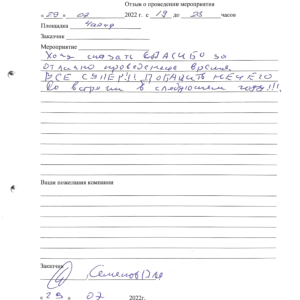 Отзыв о проведении мероприятия
« 29 » 07 2022 г. с 19 до 23 часов
Площадка
Заказчик
Мероприятие
Хочу сказать СПАСИБО за
отлично проведенное время
ВСЕ СУПЕР!!! ДОБАВИТЬ НЕЧЕГО
до встречи в следующем году!!!
Ваши пожелания компании
Заказчик
« 29 » 07 2022г.